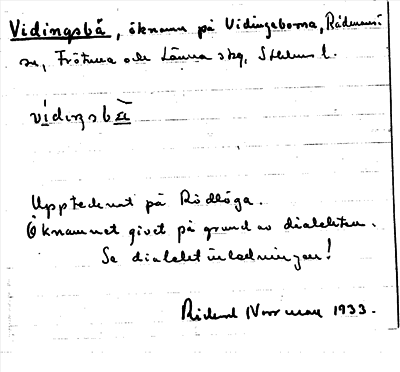 Vidingsbå, öknamn på Vidingeborna, Rådmansö
so, Frötuna och Länna skg, Sthlms l.
vidiŋsbå̀
Upptecknat på Rödlöga.
Öknamnet givet på grund av dialekten.
Se dialektinledningen!
Rickard Norrman 1933.